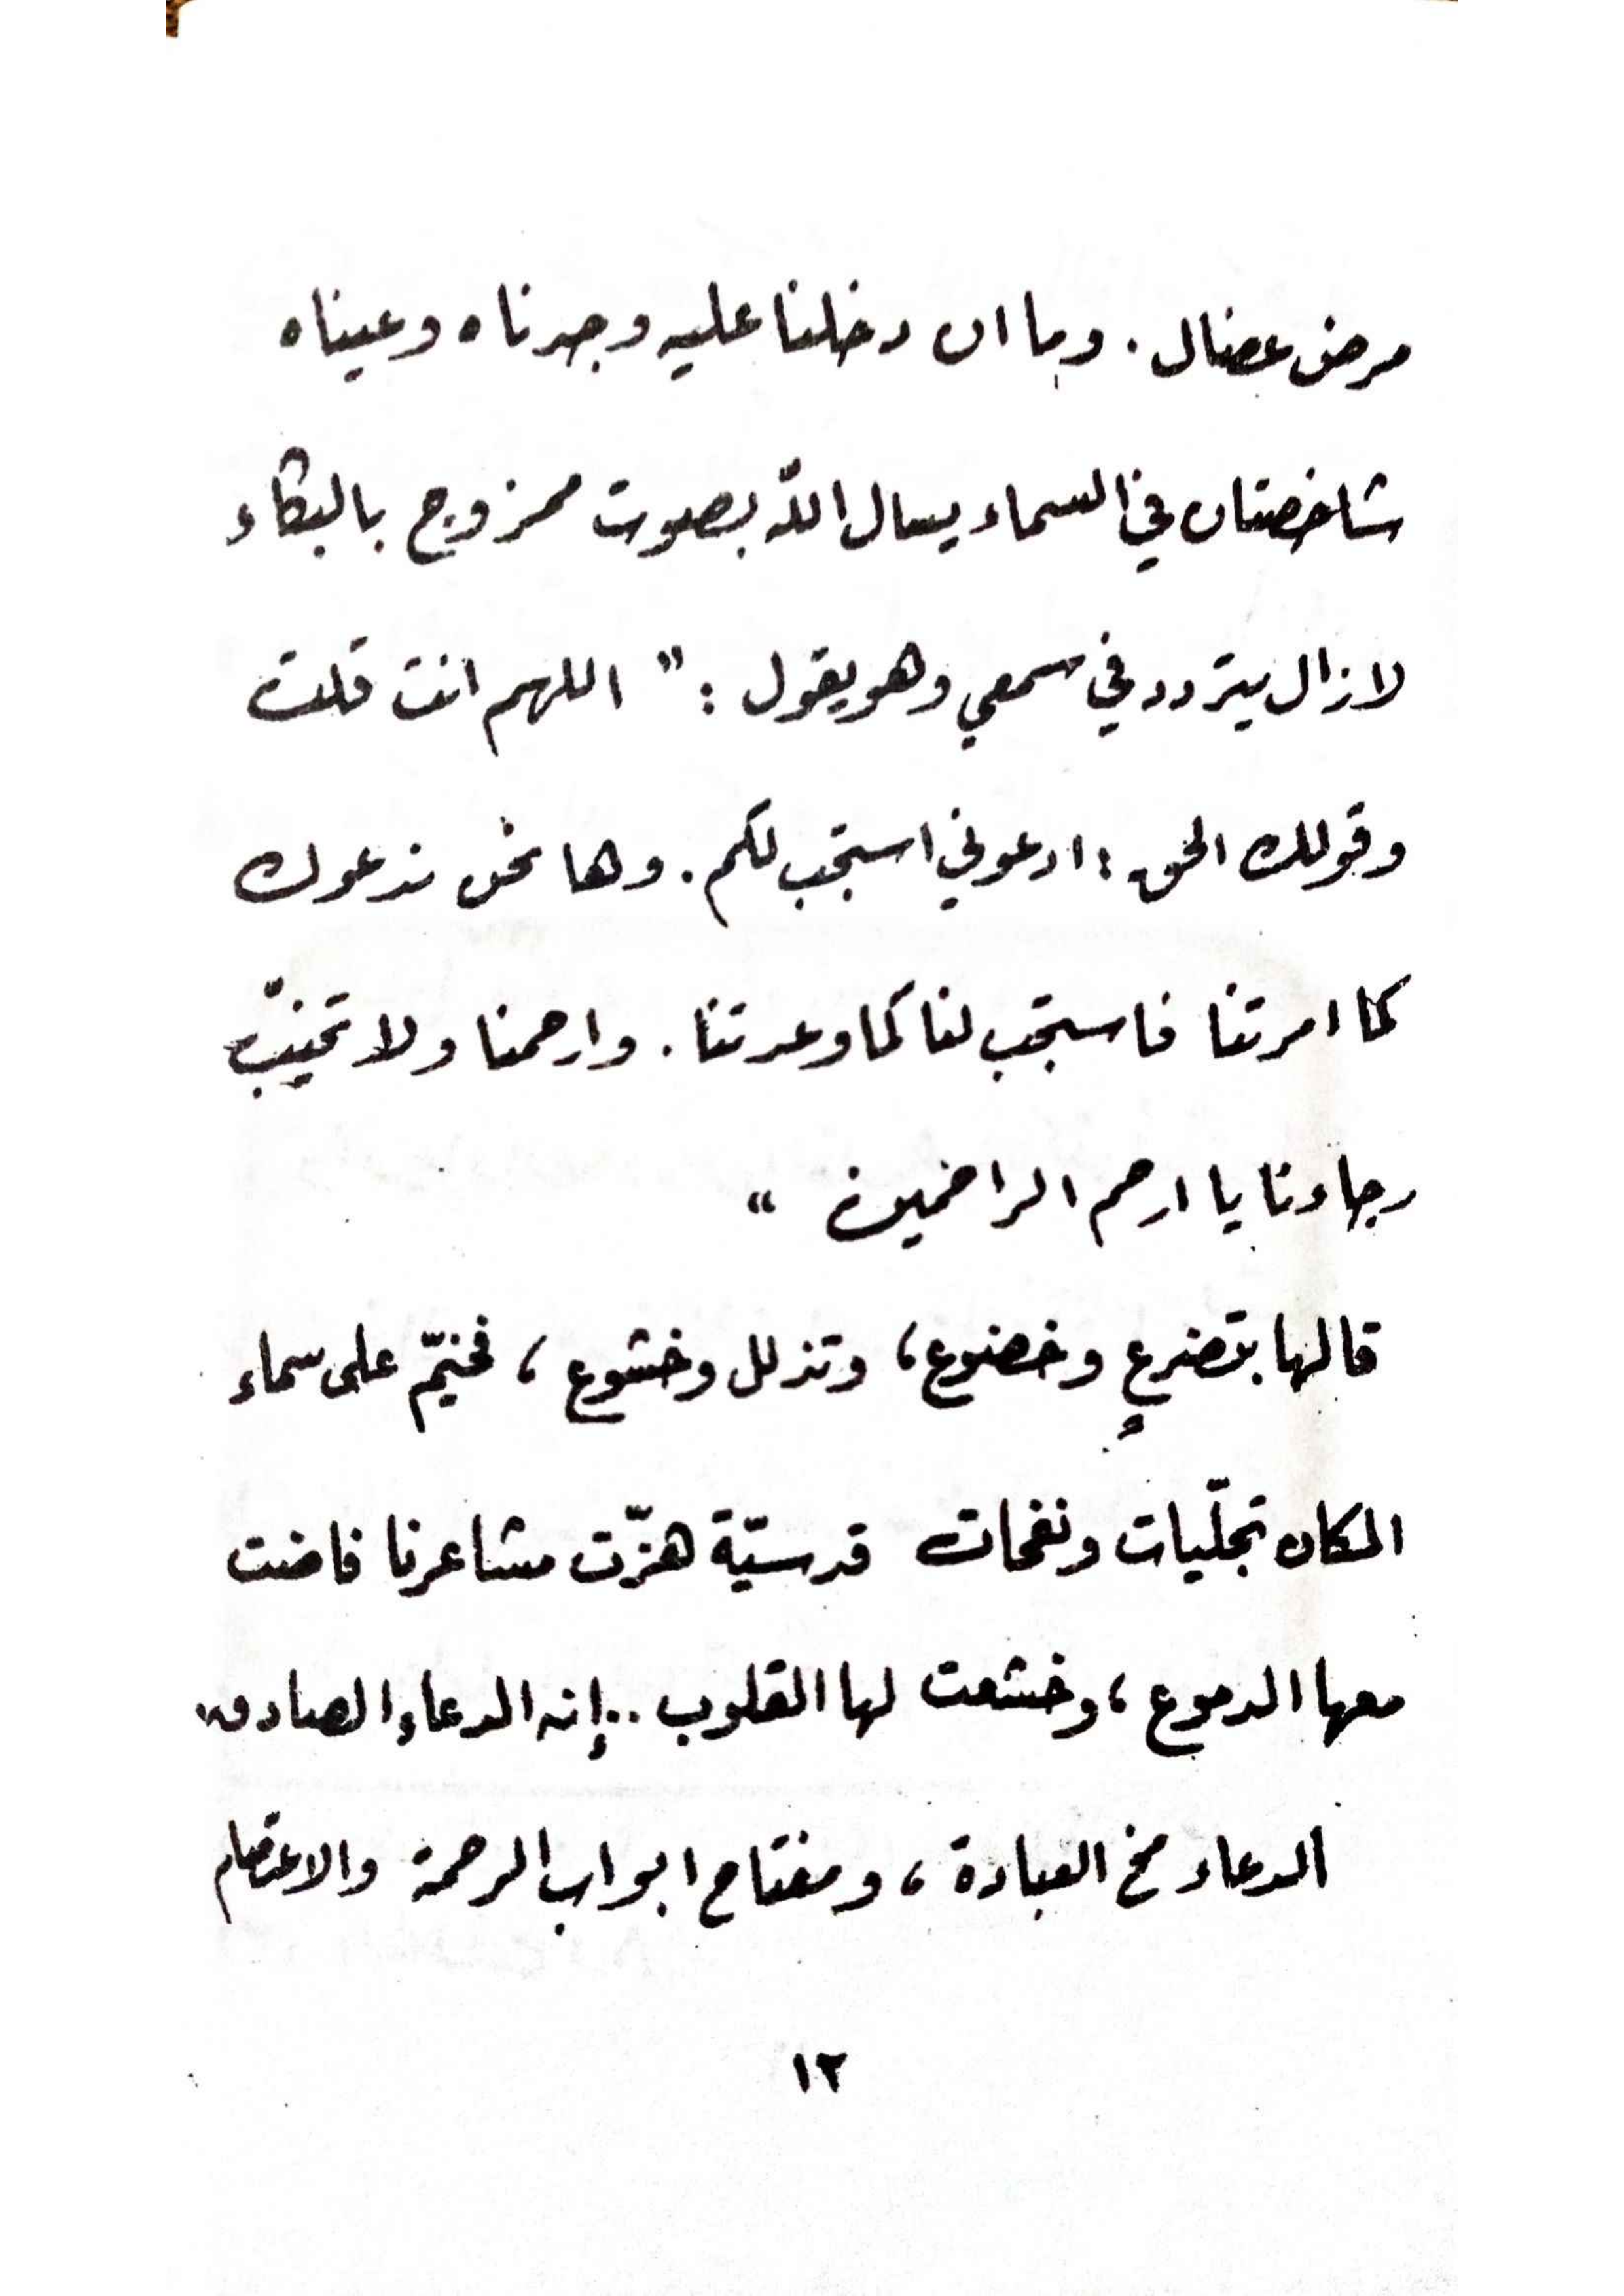 مرض عضال. وما ان دخلنا عليه وجدناه وعيناه
شاخصتان في السماء يسال اللّه بصوت ممزوج بالبكاء
لازال يتردد في سمعي وهو يقول : " اللهم انت قلت
وقولك الحق : ادعوني استجب لكم. وها نحن ندعوك
كما امرتنا فاستجب لنا كما وعدتنا. وارحمنا ولا تخيّب
رجاءنا يا ارحم الراحمين "
قالها بتضرعٍ وخضوع، وتذلل وخشوع، فخيّم على سماء
المكان تجلّيات ونفحات قدسيّة هزّت مشاعرنا فاضت
معها الدموع، وخشعت لها القلوب.. إنه الدعاء الصادق..
الدعاء مخ العبادة، ومفتاح ابواب الرحمة والاعتصام
١٢